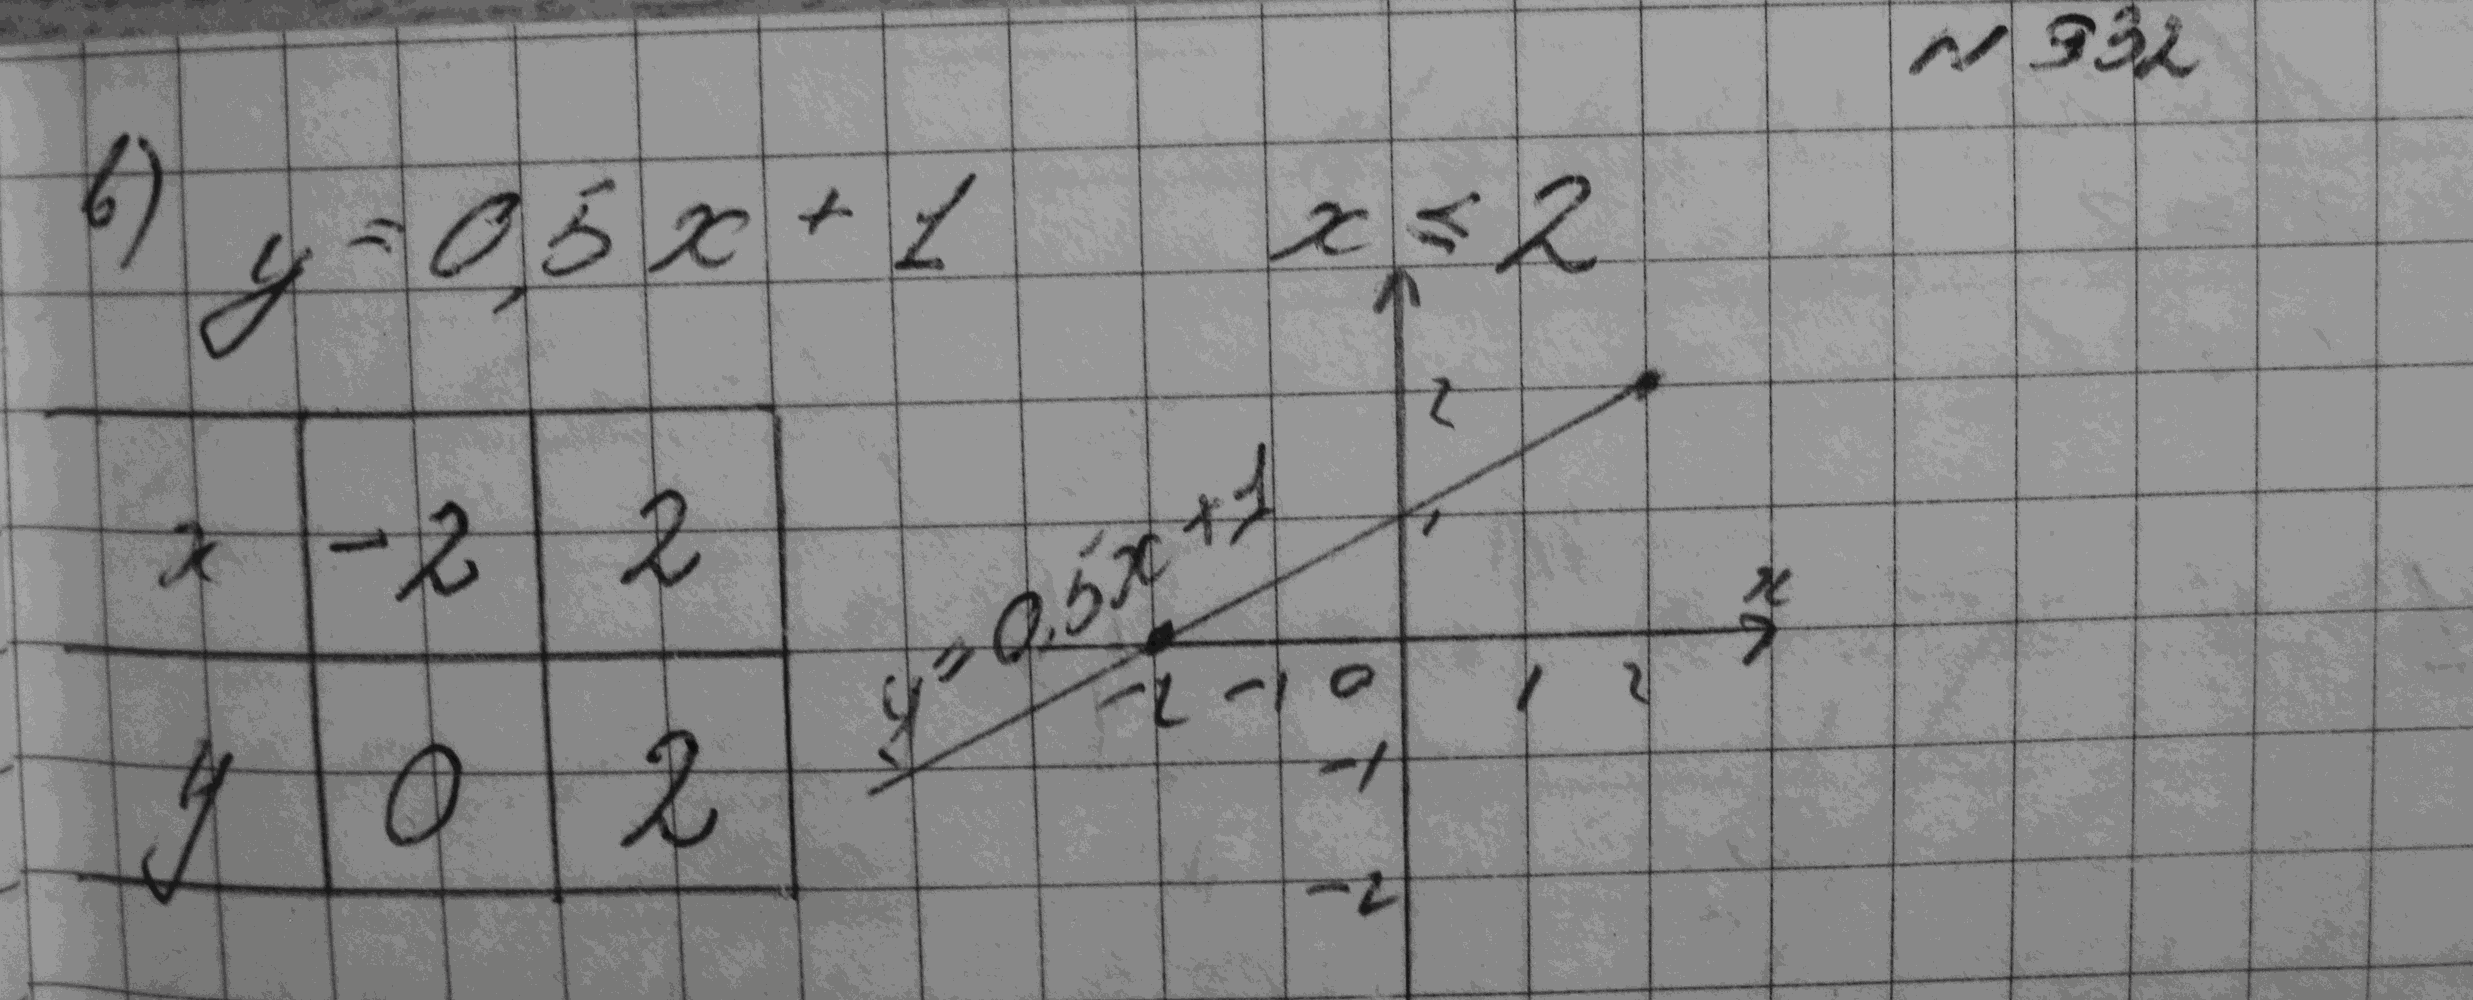 № 332
б) y = 0,5x + 1 x ≤ 2
x -2 2
y 0 2
y = 0,5x + 1
2
1
x
-2 -1 0 1 2
-1
-2